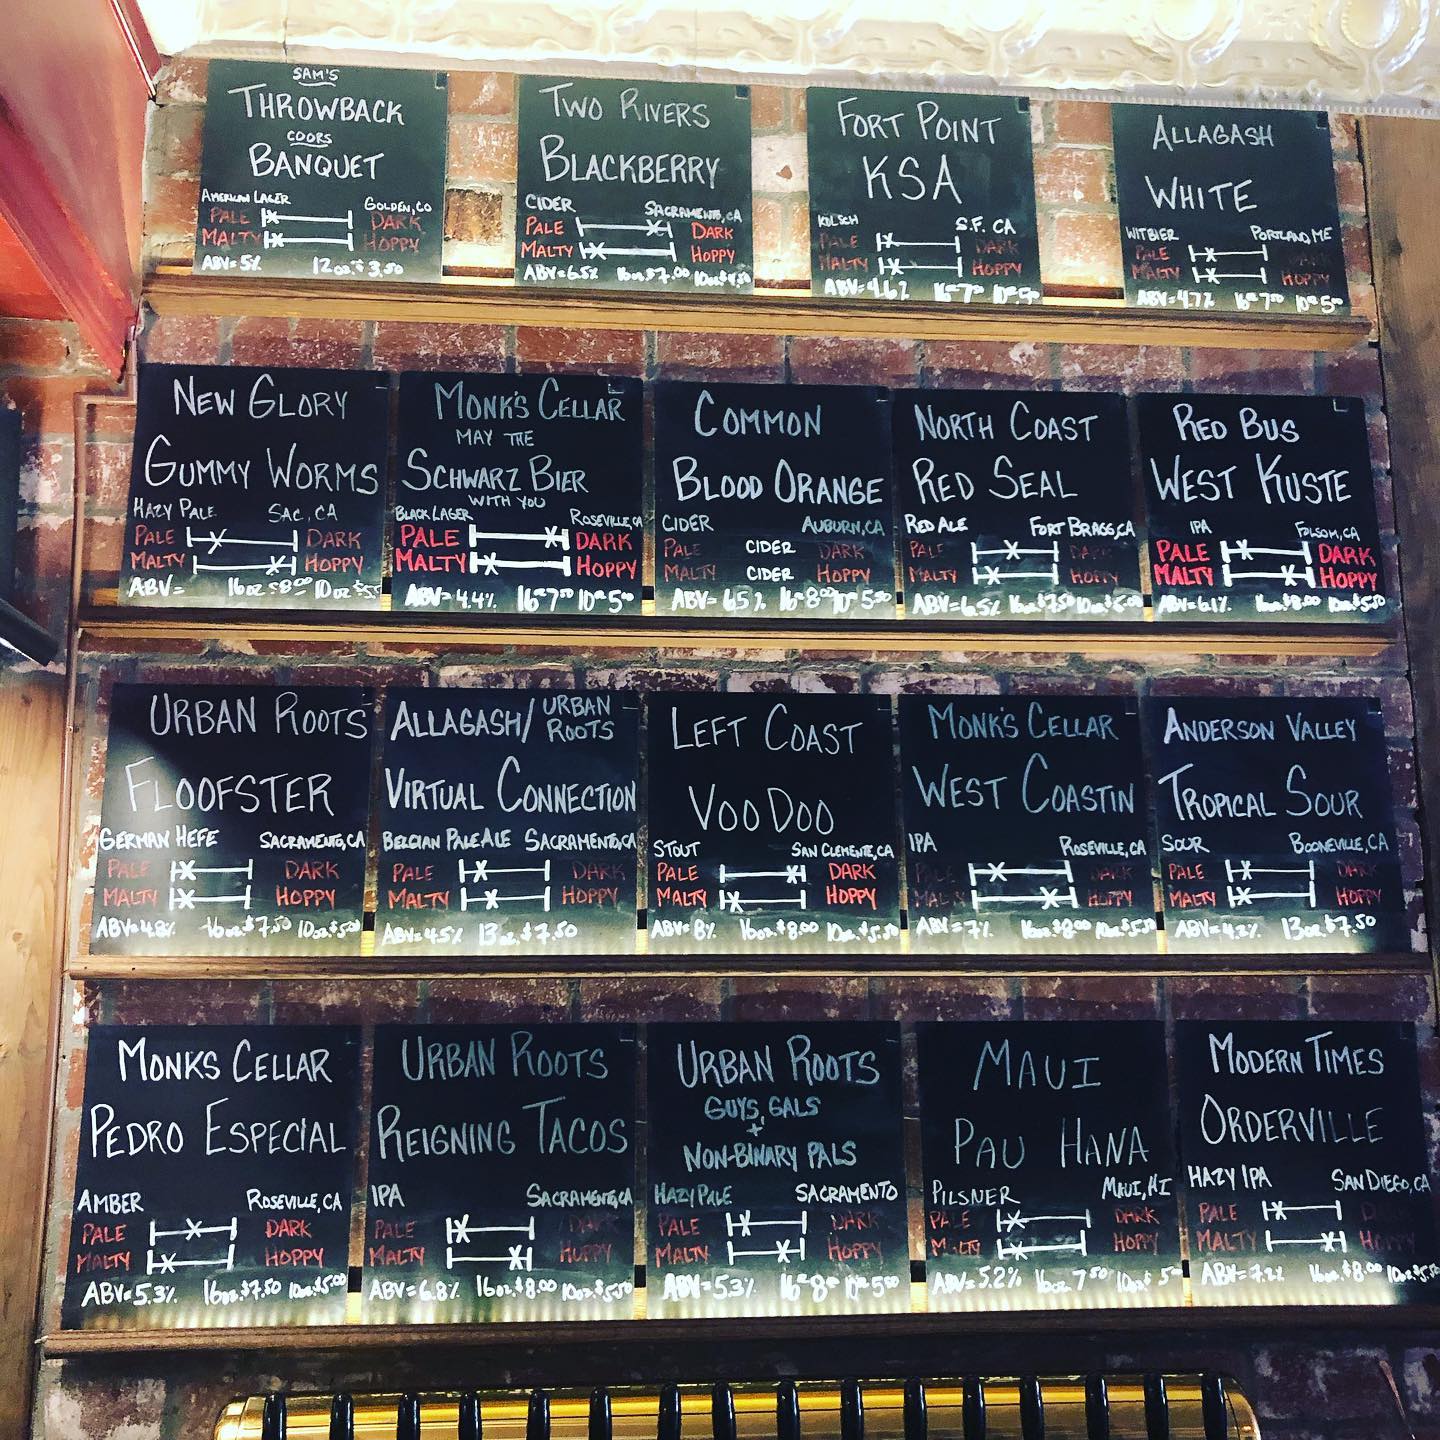 SAM'S
THROWBACK
COORS
BANQUET
AMERICAN LAGER GOLDEN, CO
PALE DARK
MALTY HOPPY
ABV=5% 12oz.$3.50
TWO RIVERS
BLACKBERRY
CIDER SACRAMENTO, CA
PALE DARK
MALTY HOPPY
ABV=6.5% 16oz.$7.00 10oz.$4.50
FORT POINT
KSA
KOLSCH S.F. CA
PALE DARK
MALTY HOPPY
ABV=4.6% 16oz 7.00 10oz 5.00
ALLAGASH
WHITE
WITBIER PORTLAND, ME
PALE DARK
MALTY HOPPY
ABV=4.7% 16oz 7.00 10oz 5.00
NEW GLORY
GUMMY WORMS
HAZY PALE SAC., CA
PALE DARK
MALTY HOPPY
ABV= 16oz $8.00 10oz $5.50
MONK'S CELLAR
MAY THE
SCHWARZ BIER
WITH YOU
BLACK LAGER ROSEVILLE, CA
PALE DARK
MALTY HOPPY
ABV=4.4% 16oz 7.50 10oz 5.00
COMMON
BLOOD ORANGE
CIDER AUBURN, CA
PALE CIDER DARK
MALTY CIDER HOPPY
ABV=6.5% 16oz 8.00 10oz 5.50
NORTH COAST
RED SEAL
RED ALE FORT BRAGG, CA
PALE DARK
MALTY HOPPY
ABV=6.5% 16oz.$7.50 10oz.$5.00
RED BUS
WEST KUSTE
IPA FOLSOM, CA
PALE DARK
MALTY HOPPY
ABV=6.1% 16oz.$8.00 10oz.$5.50
URBAN ROOTS
FLOOFSTER
GERMAN HEFE SACRAMENTO, CA
PALE DARK
MALTY HOPPY
ABV=4.8% 16oz.$7.50 10oz.$5.00
ALLAGASH/ URBAN ROOTS
VIRTUAL CONNECTION
BELGIAN PALE ALE SACRAMENTO, CA
PALE DARK
MALTY HOPPY
ABV=4.5% 13oz.$7.50
LEFT COAST
VOODOO
STOUT SAN CLEMENTE, CA
PALE DARK
MALTY HOPPY
ABV=8% 16oz.$8.00 10oz.$5.50
MONK'S CELLAR
WEST COASTIN
IPA ROSEVILLE, CA
PALE DARK
MALTY HOPPY
ABV=7% 16oz.$8.00 10oz.$5.50
ANDERSON VALLEY
TROPICAL SOUR
SOUR BOONEVILLE, CA
PALE DARK
MALTY HOPPY
ABV=4.2% 13oz.$7.50
MONKS CELLAR
PEDRO ESPECIAL
AMBER ROSEVILLE, CA
PALE DARK
MALTY HOPPY
ABV=5.3% 16oz.$7.50 10oz.$5.00
URBAN ROOTS
REIGNING TACOS
IPA SACRAMENTO, CA
PALE DARK
MALTY HOPPY
ABV=6.8% 16oz.$8.00 10oz.$5.50
URBAN ROOTS
GUYS, GALS
+
NON-BINARY PALS
HAZY PALE SACRAMENTO
PALE DARK
MALTY HOPPY
ABV=5.3% 16oz 8.00 10oz 5.00
MAUI
PAU HANA
PILSNER MAUI, HI
PALE DARK
MALTY HOPPY
ABV=5.2% 16oz 7.50 10oz 5.00
MODERN TIMES
ORDERVILLE
HAZY IPA SAN DIEGO, CA
PALE
MALTY HOPPY
ABV=7.2% 16oz.$8.00 10oz.$5.50